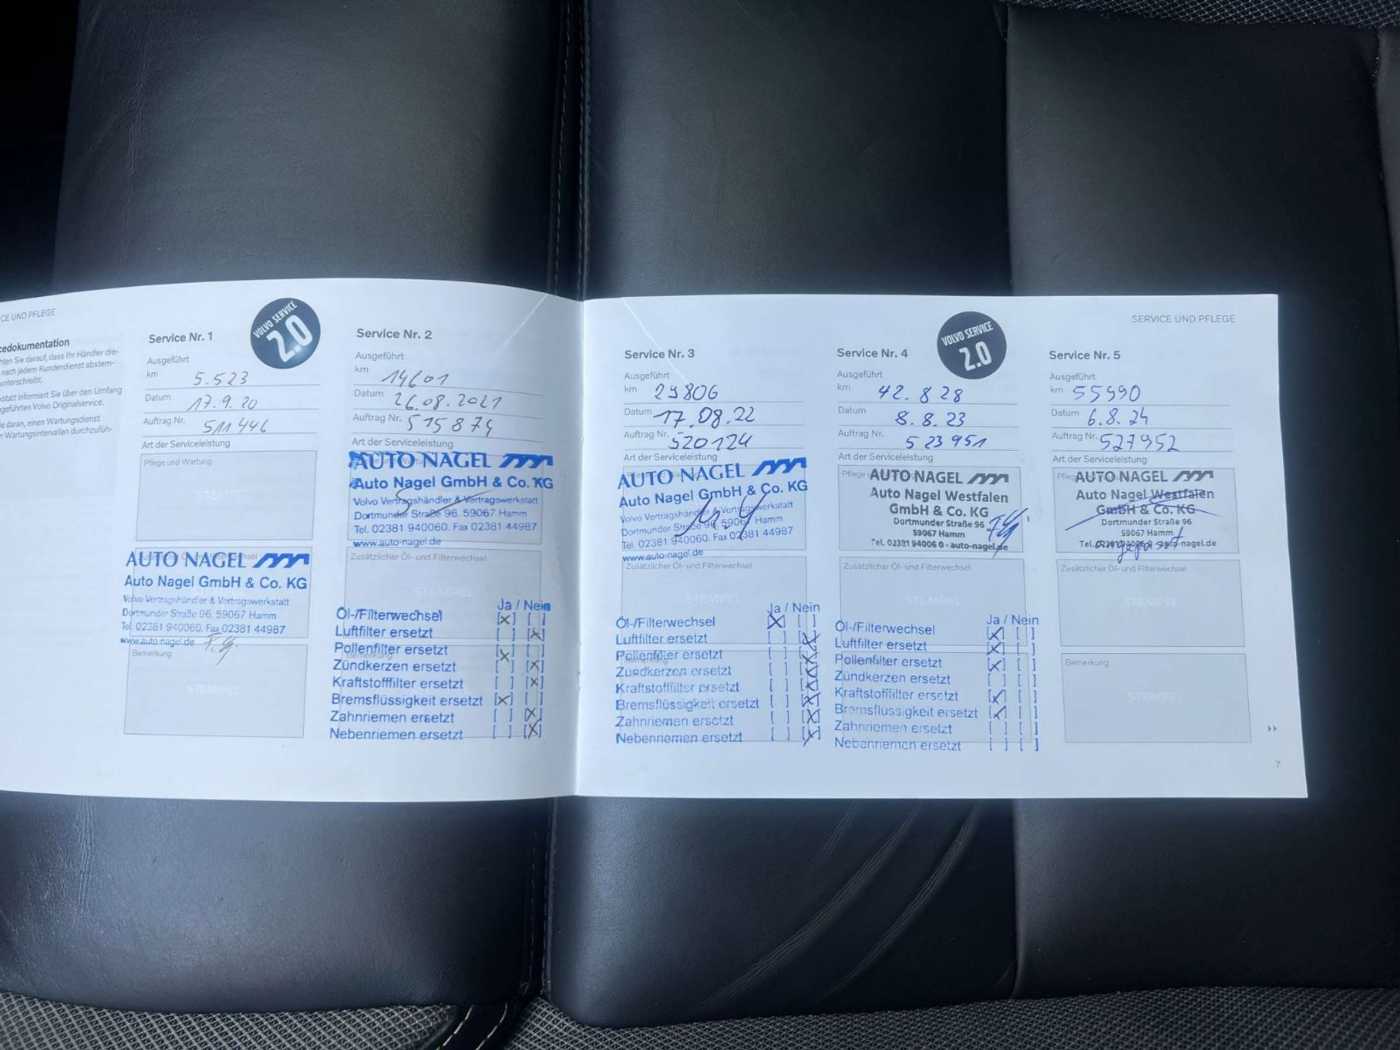 CE UND PFLEGE
cedokumentation
hten Sie darauf, dass Ihr Händler die-
nach jedem Kundendienst abstem-
unterschreibt.
statt informiert Sie über den Umfang
geführten Volvo Originalservice.
ie daran, einen Wartungsdienst
r Wartungsintervallen durchzufüh-
Service Nr. 1
VOLVO SERVICE
2.0
Ausgeführt
km 5.523
Datum 17.9.20
Auftrag Nr. 511446
Art der Serviceleistung
Pflege und Wartung
STEMPEL
AUTO NAGEL
Auto Nagel GmbH & Co. KG
Volvo Vertragshändler & Vertragswerkstatt
Dortmunder Straße 96, 59067 Hamm
Tel. 02381 940060, Fax 02381 44987
www.auto-nagel.de
Bemerkung
STEMPEL
Service Nr. 2
Ausgeführt
km 14601
Datum 26.08.2021
Auftrag Nr. 515874
Art der Serviceleistung
AUTO NAGEL
Auto Nagel GmbH & Co. KG
Volvo Vertragshändler & Vertragswerkstatt
Dortmunder Straße 96, 59067 Hamm
Tel. 02381 940060, Fax 02381 44987
www.auto-nagel.de
Zusätzlicher Öl- und Filterwechsel
STEMPEL
Ja / Nein
Öl-/Filterwechsel [x] [ ]
Luftfilter ersetzt [ ] [x]
Pollenfilter ersetzt [x] [ ]
Zündkerzen ersetzt [ ] [x]
Kraftstofffilter ersetzt [ ] [x]
Bremsflüssigkeit ersetzt [x] [ ]
Zahnriemen ersetzt [ ] [x]
Nebenriemen ersetzt [ ] [x]
SERVICE UND PFLEGE
Service Nr. 3
Ausgeführt
km 29806
Datum 17.08.22
Auftrag Nr. 520124
Art der Serviceleistung
AUTO NAGEL
Auto Nagel GmbH & Co. KG
Volvo Vertragshändler & Vertragswerkstatt
Dortmunder Straße 96, 59067 Hamm
Tel. 02381 940060, Fax 02381 44987
www.auto-nagel.de
Zusätzlicher Öl- und Filterwechsel
STEMPEL
Ja / Nein
Öl-/Filterwechsel [x] [ ]
Luftfilter ersetzt [ ] [x]
Pollenfilter ersetzt [ ] [x]
Zündkerzen ersetzt [ ] [x]
Kraftstofffilter ersetzt [ ] [x]
Bremsflüssigkeit ersetzt [ ] [x]
Zahnriemen ersetzt [ ] [x]
Nebenriemen ersetzt [ ] [x]
Service Nr. 4
VOLVO SERVICE
2.0
Ausgeführt
km 42.828
Datum 8.8.23
Auftrag Nr. 523951
Art der Serviceleistung
AUTO NAGEL
Auto Nagel Westfalen
GmbH & Co. KG
Dortmunder Straße 96
59067 Hamm
Tel. 02381 94006 0 - auto-nagel.de
Zusätzlicher Öl- und Filterwechsel
STEMPEL
Ja / Nein
Öl-/Filterwechsel [x] [ ]
Luftfilter ersetzt [x] [ ]
Pollenfilter ersetzt [x] [ ]
Zündkerzen ersetzt [ ] [ ]
Kraftstofffilter ersetzt [x] [ ]
Bremsflüssigkeit ersetzt [x] [ ]
Zahnriemen ersetzt [ ] [ ]
Nebenriemen ersetzt [ ] [ ]
Service Nr. 5
Ausgeführt
km 55990
Datum 6.8.24
Auftrag Nr. 527952
Art der Serviceleistung
AUTO NAGEL
Auto Nagel Westfalen
GmbH & Co. KG
Dortmunder Straße 96
59067 Hamm
Tel. 02381 94006 0 - auto-nagel.de
Zusätzlicher Öl- und Filterwechsel
STEMPEL
Bemerkung
STEMPEL
7